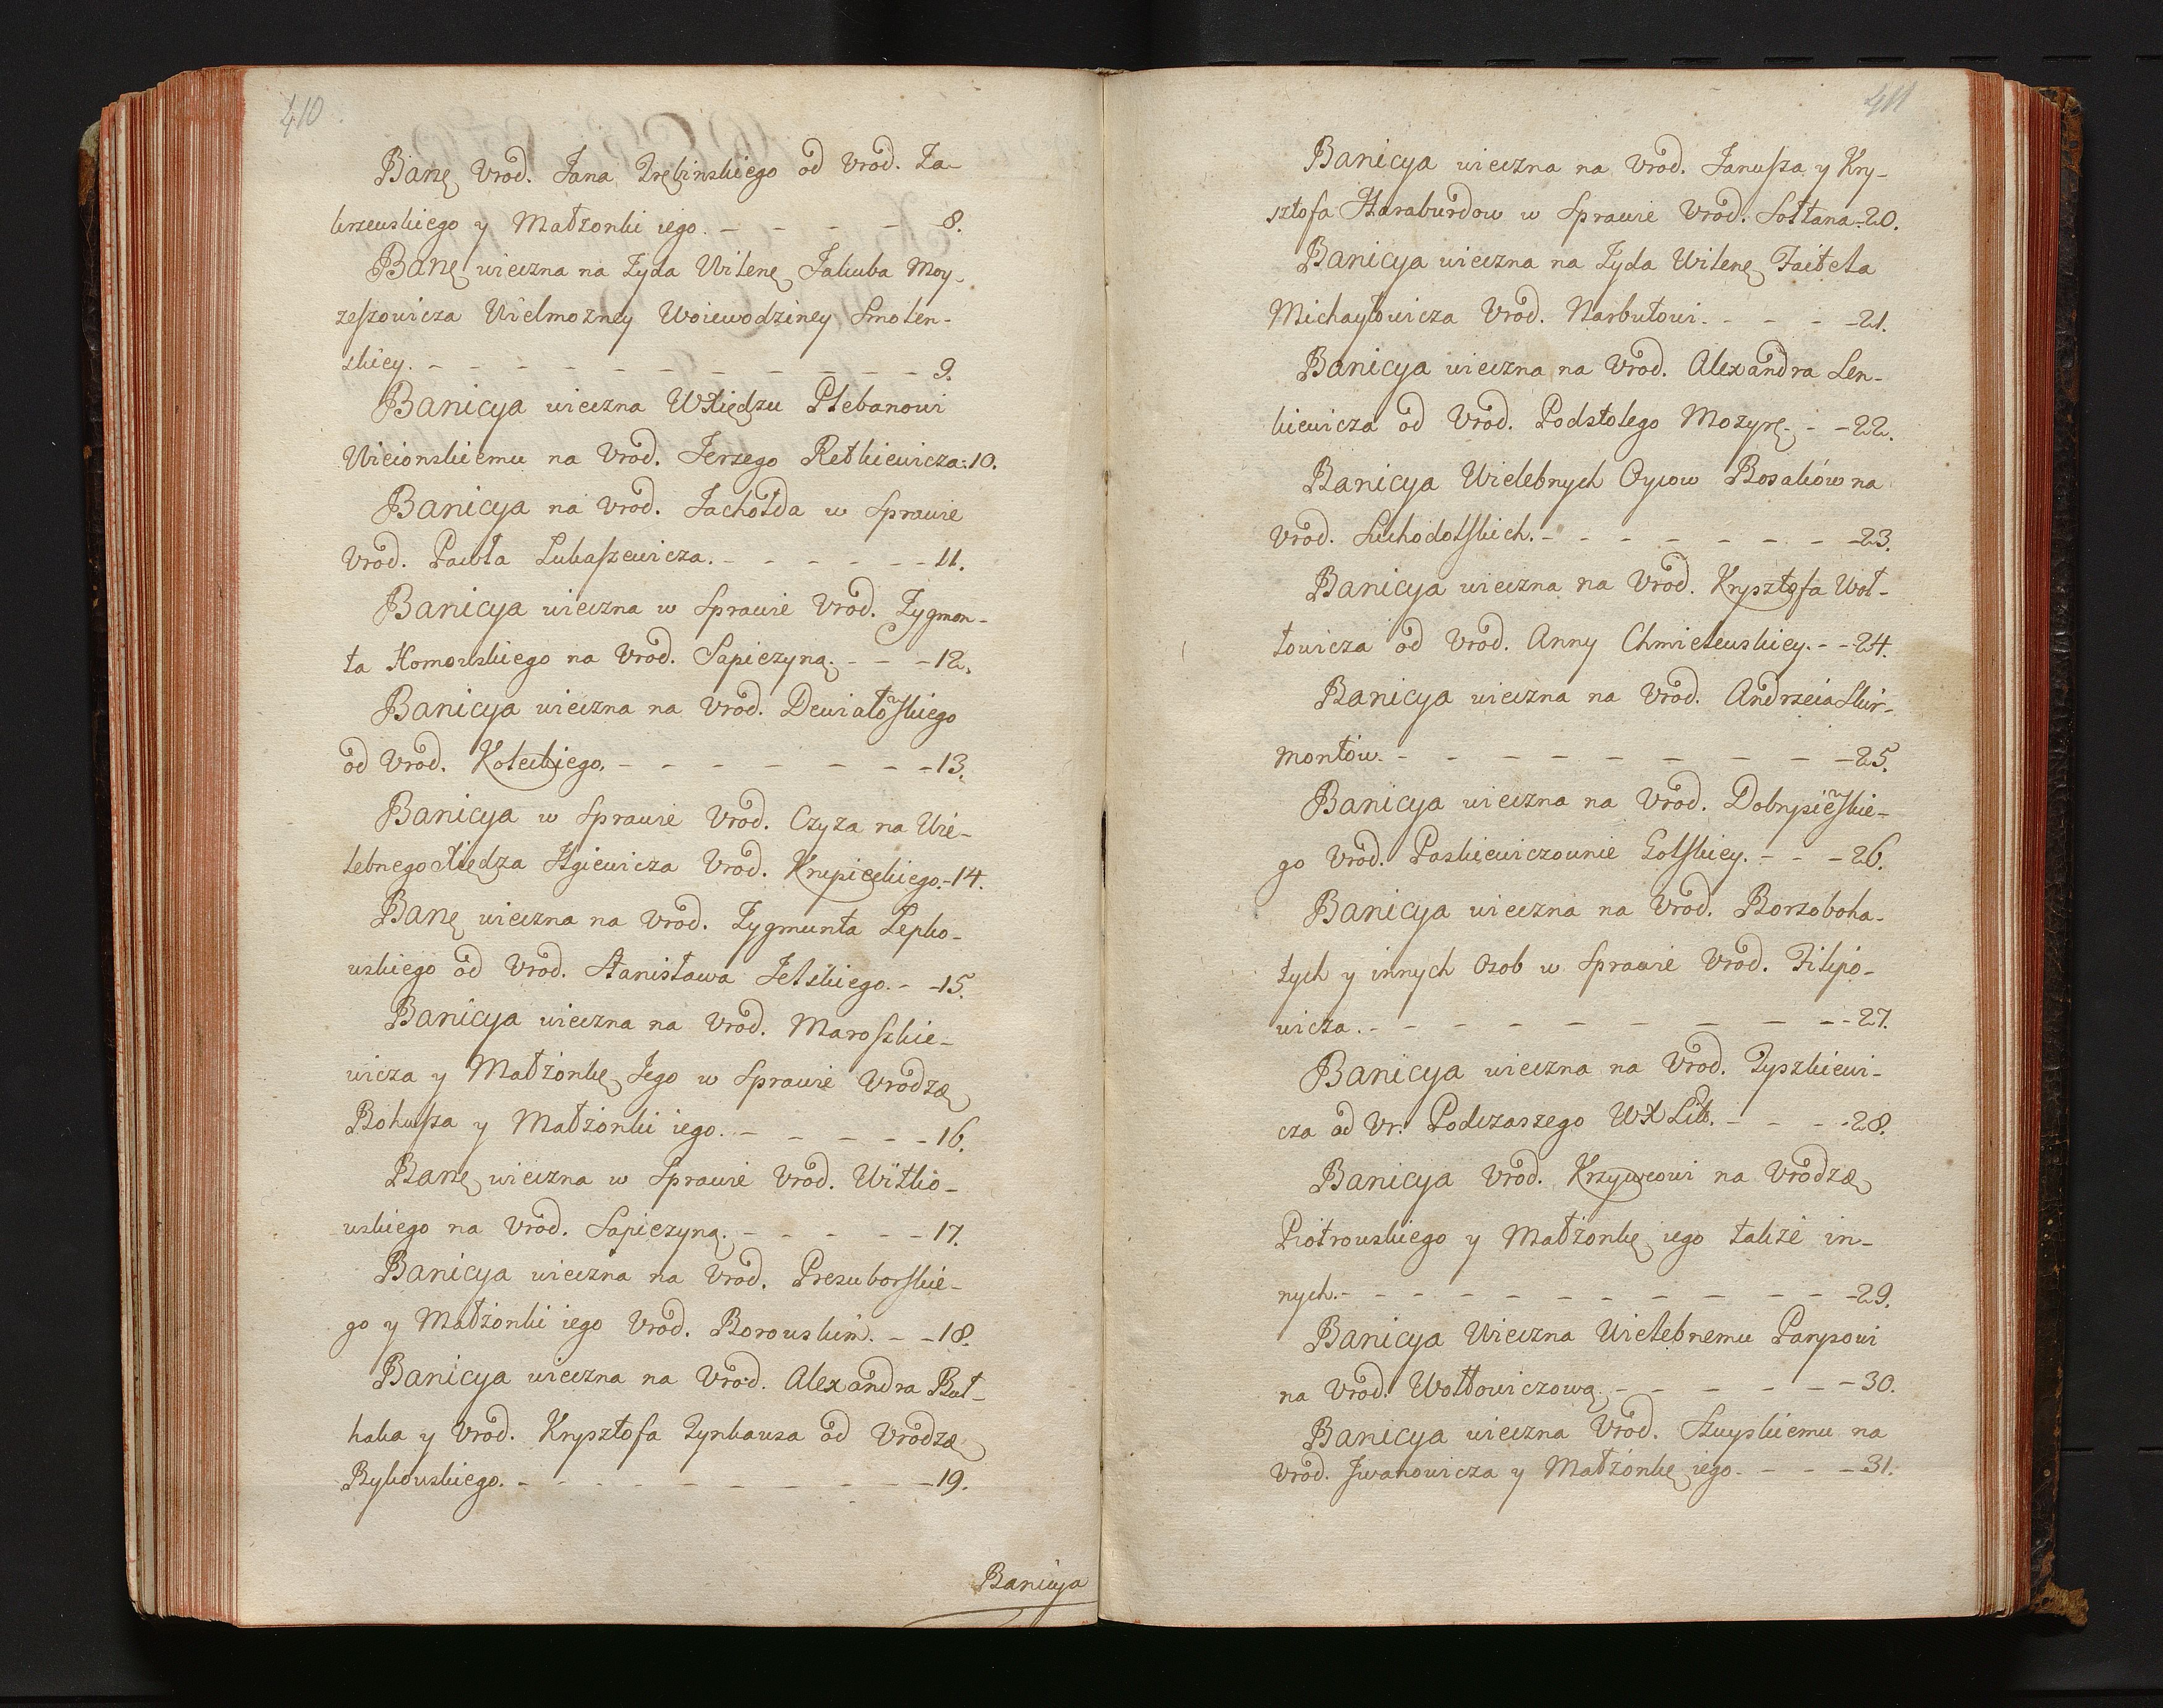 410
Banę Vrod. Jana Zrębinskiego od Vrod. Za-
krzewskiego y Małżonki iego. - - - - - 8.
Banę wieczna na Zyda Wilenę Jakuba Moy-
zeszowicza Wielmozney Woiewodziney Smolen-
skiey. - - - - - - - - - - - 9.
Banicya wieczna WXiędzu Plebanowi
Wicionskiemu na Vrod. Jerzego Retkiewicza.10.
Banicya na Vrod. Jachołda w Sprawie
Vrod. Pawła Lukaszewicza. - - - - - - 11.
Banicya wieczna w Sprawie Vrod. Zygmon-
ta Komorskiego na Vrod. Sapiezyną. - - - 12.
Banicya wieczna na Vrod. Dewiałowskiego
od Vrod. Koleckiego. - - - - - - - - 13.
Banicya w Sprawie Vrod. Czyza na Wie-
lebnego Xiędza Hgiewicza Vrod. Krupieckiego.-14.
Banę wieczna na Vrod. Zygmunta Lepko-
wskiego od Vrod. Stanisława Jelskiego. - -15.
Banicya wieczna na Vrod. Maroszkie-
wicza y Małżonkę Jego w Sprawie Vrodzę
Bohusza y Małżonki iego. - - - - - - 16.
Banę wieczna w Sprawie Vrod. Witko-
wskiego na Vrod. Sapiezyną. - - - - - - 17.
Banicya wieczna na Vrod. Prezuborskie-
go y Małżonki iego Vrod. Borowskim. - - 18.
Banicya wieczna na Vrod. Alexandra Buł-
haka y Vrod. Krysztofa Zynhausa od Vrodzę
Bykowskiego. - - - - - - - - - - 19.
Banicya
411
Banicya wieczna na Vrod. Janusza y Kry-
sztofa Haraburdow w Sprawie Vrod. Sołtana.-20.
Banicya wieczna na Zyda Wilenę Faitela
Michayłowicza Vrod. Narbutowi. - - - - 21.
Banicya wieczna na Vrod. Alexandra Len-
kiewicza od Vrod. Podstolego Mozyrę. - - 22.
Banicya Wielebnych Oycow Bosaków na
Vrod. Suchodolskich. - - - - - - - - 23.
Banicya wieczna na Vrod. Krysztofa Woł-
łowicza od Vrod. Anny Chmielewskiey. - - 24.
Banicya wieczna na Vrod. Andrzeia Skir-
montow. - - - - - - - - - - 25.
Banicya wieczna na Vrod. Dobrypiewskie-
go Vrod. Paskiewiczownie Golskiey. - - - 26.
Banicya wieczna na Vrod. Borzoboha-
tych y innych Osob w Sprawie Vrod. Filipo-
wicza. - - - - - - - - - - 27.
Banicya wieczna na Vrod. Tyszkiewi-
cza od Vr. Podczaszego WXLitt. - - - - 28.
Banicya Vrod. Krzywcowi na Vrodzę
Piotrowskiego y Małżonkę iego takze in-
nych. - - - - - - - - - - - - 29.
Banicya Wieczna Wielebnemu Parysowi
na Vrod. Wołłowiczową. - - - - - - 30.
Banicya wieczna Vrod. Szuyskiemu na
Vrod. Jwanowicza y Małżonkę iego. - - - - 31.